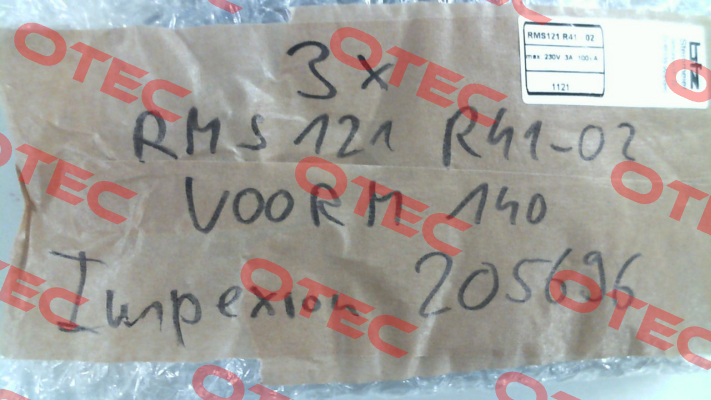 RMS121 R41 02
max 230V 3A 100VA
1121
btz
3x
RMS 121 R41-02
VOORM 140
Impexion 205696
OTEC
OTEC
OTEC
OTEC
OTEC
OTEC
OTEC
OTEC
OTEC
OTEC
OTEC
OTEC
OTEC